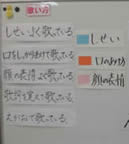 歌い方
しせいよく歌っている。
口をしっかりあけて歌っている。
顔の表情よく歌っている。
歌詞を覚えて歌っている。
えがおで歌っている。
しせい
口のあけ方
顔の表情